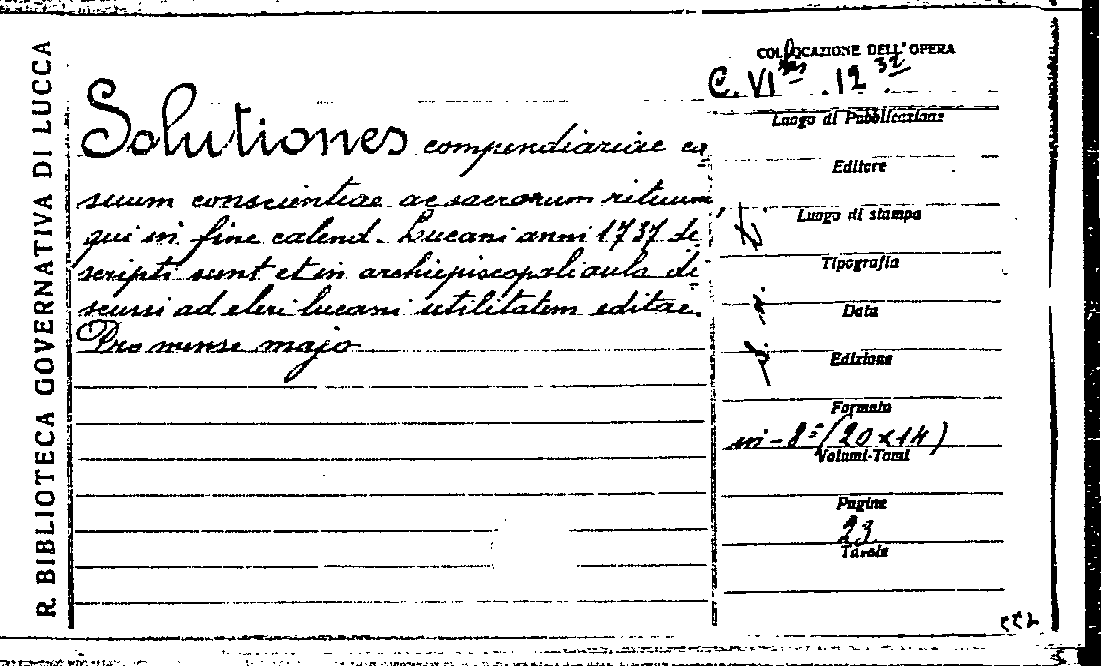 R. BIBLIOTECA GOVERNATIVA DI LUCCA
Solutiones compendiariae ca-
suum conscientiae ac sacrorum rituum,
qui in fine calend. Lucani anni 1737 de-
scripti sunt et in archiepiscopali aula di-
scussi ad cleri lucani utilitatem editae.
Pro mense majo
COLLOCAZIONE DELL' OPERA
C. VI 12 32
Luogo di Pubblicazione
Editore
Luogo di stampa
Tipografia
Data
Edizione
Formato
in-8° (20x14)
Volumi-Tomi
Pagine
23
Tavole